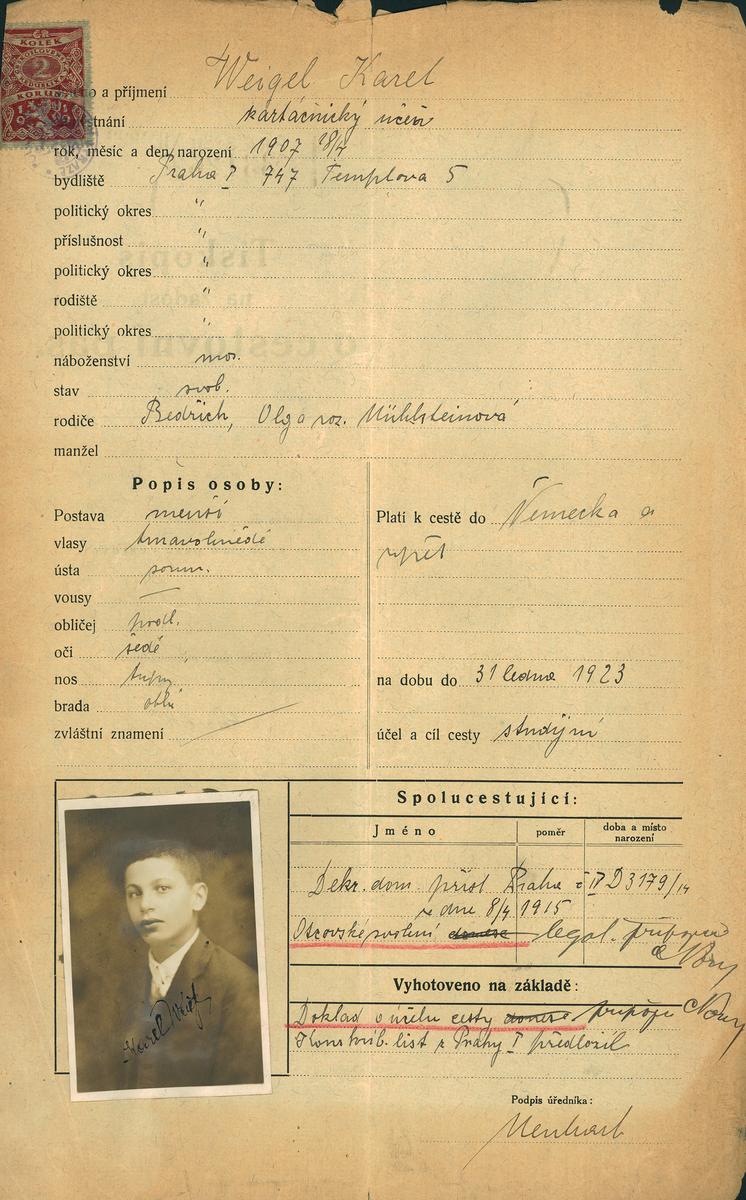 KOLEK
2
KORUNY
a příjmení Weigel Karel
kartáčnický učeň
rok, měsíc a den narození 1907 18/4
bydliště Praha I 747 Templova 5
politický okres "
příslušnost "
politický okres "
rodiště "
politický okres "
náboženství mos.
stav svob.
rodiče Bedřich, Olga roz. Mühlsteinová
manžel
Popis osoby:
Postava menší
vlasy tmavohnědé
ústa soum.
vousy —
obličej podl.
oči šedé
nos tupý
brada oblá
zvláštní znamení
Platí k cestě do Německa a
zpět
na dobu do 31 ledna 1923
účel a cíl cesty studijní
Spolucestující:
Jméno poměr doba a místo narození
Dekr. dom. přísl Praha č IV D 3179/14
ze dne 8/4 1915
Otcovské svolení donese legal. připojeno
Vyhotoveno na základě:
Doklad o účelu cesty donese připoje
Konskrib. list z Prahy I předložil
Podpis úředníka:
Karel Weigl